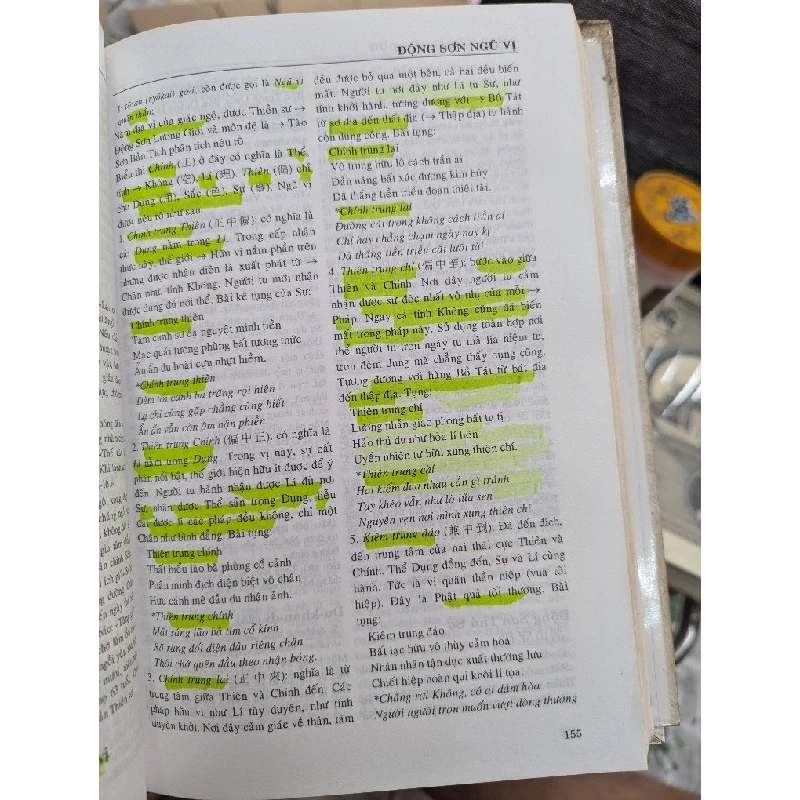 ĐỘNG SƠN NGŨ VỊ
(ryōkai) goi, còn được gọi là Ngũ vị
quân thần.
Năm địa vị của giác ngộ, được Thiền sư →
Động Sơn Lương Giới và môn đệ là → Tào
Sơn Bản Tịch phân tích nêu rõ.
Biểu thị Chính (正) ở đây có nghĩa là Thể
tính → Không (空), Lí (理). Thiên (偏) chỉ
cho Dụng (用), Sắc (色), Sự (事). Ngũ vị
được nêu rõ như sau
1. Chính trung Thiên (正中偏): có nghĩa là
cái Dụng nằm trong Lí. Trong cấp nhận
thức này, thế giới → Hiện vi nằm phần trên
nhưng được nhận diện là xuất phát từ →
Chân như, tính Không. Người tu mới nhận
được đúng đó nơi thể. Bài kệ tụng của Sư:
Chính trung thiên
Tam canh sơ dạ nguyệt minh tiền
Mạc quái tương phùng bất tương thức
Ẩn ẩn du hoài cựu nhật hiềm.
*Chính trung thiên
Đêm tối canh ba trăng rọi hiên
Lạ chi cùng gặp chẳng cùng biết
Ẩn ẩn vẫn còn ôm hận phiền
2. Thiên trung Chính (偏中正), có nghĩa là
Lí nằm trong Dụng. Trong vị này, sự cắt
phần nổi bật, thế giới hiện hữu ít được để ý
đến. Người tu hành nhận được Lí đủ nơi
Sự, nhận được Thể sẵn trong Dụng, liễu
đạt được lí các pháp đều không, chỉ một
Chân như bình đẳng. Bài tụng:
Thiên trung chính
Thất hiểu lão bà phùng cổ cảnh
Phân minh địch diện biệt vô chân
Hưu cánh mê đầu du nhận ảnh.
*Thiên trung chính
Mắt sáng lão bà tìm cổ kính
Rõ ràng đối diện đâu riêng chân
Thôi chớ quên đầu theo nhận bóng.
3. Chính trung lai (正中來): nghĩa là từ
trung tâm giữa Thiên và Chính đến. Các
pháp hữu vi như Lí tùy duyên, như tính
duyên khởi. Nơi đây cảm giác về thân, tâm
đều được bỏ qua một bên, cả hai đều biến
mất. Người Lí nơi đây như lí tu Sự, như
tính khởi hành, tương đương với → Bồ Tát
từ sơ địa đến thất địa (→ Thập địa) tu hành
còn dụng công. Bài tụng:
Chính trung lai
Vô trung hữu lộ cách trần ai
Đãn năng bất xúc đương kim húy
Dã thắng tiền triều đoạn thiệt tài.
*Chính trung lại
Đường cái trong không cách trần ai
Chỉ hay chẳng chạm ngày nay kị
Đã thắng tiền triều cắt lưỡi tài
4. Thiên trung chí (偏中至): bước vào giữa
Thiên và Chính. Nơi đây người tu cảm
nhận được sự độc nhất vô nhị của mỗi →
Pháp. Ngay cả tính Không cũng đã biến
mất trong pháp này. Sử dụng toàn hợp nơi
thể người tu trọn ngày tu mà lìa niệm tu,
trọn đêm dụng mà chẳng thấy dụng công.
Tương đương với hàng Bồ Tát từ bát địa
đến thập địa. Tụng:
Thiên trung chí
Lưỡng nhận giao phong bất tu tị
Hảo thủ du như hỏa lí liên
Uyển nhiên tự hữu xung thiên chí.
*Thiên trung cắt
Hai kiếm đua nhau cần gì tránh
Tay khéo vẫn như lò lửa sen
Nguyên vẹn nơi mình xung thiên chí
5. Kiêm trung đáo (兼中到): Đã đến đích,
đến trung tâm của hai thái cực Thiên và
Chính. Thể Dụng đồng đến, Sự và Lí cùng
hành. Tức là vị quân thần hiệp (vua tôi
hiệp). Đây là Phật quả tối thượng. Bài
tụng:
Kiêm trung đáo
Bất lạc hữu vô thùy cảm hòa
Nhân nhân tận dục xuất thường lưu
Chiết hiệp hoàn qui khôi lí tọa.
*Chẳng rơi Không, có ai dám hòa
Người người trọn muốn vượt dòng thường
155